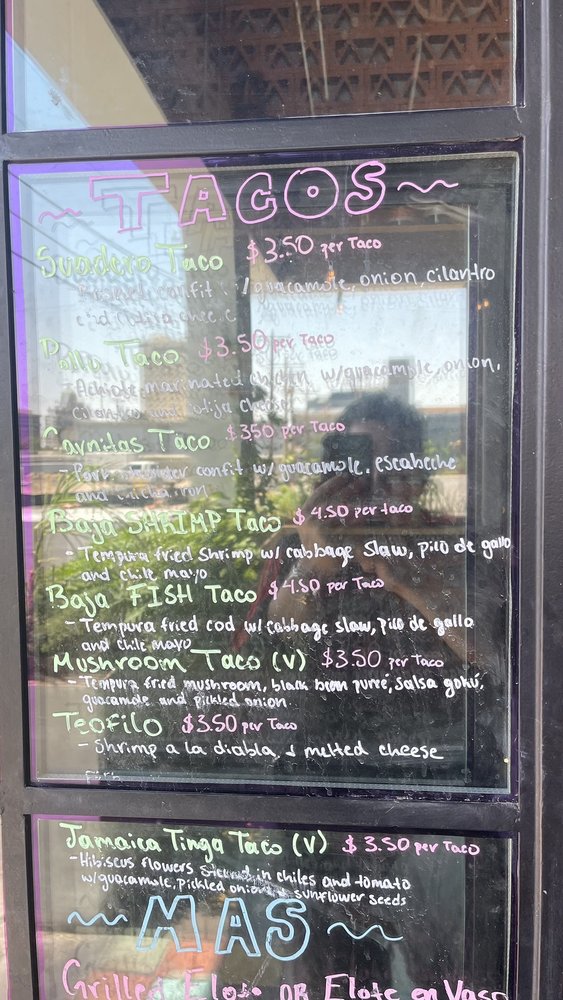 ~ TACOS ~
Suadero Taco $3.50 per Taco
confit w/guacamole, onion, cilantro
Pollo Taco $3.50 per Taco
- Achiote marinated chicken w/guacamole, onion,
cilantro and cotija cheese
Carnitas Taco $3.50 per Taco
- Pork shoulder confit w/ guacamole, escabeche
and chicharron
Baja SHRIMP Taco $4.50 per taco
- Tempura fried shrimp w/ cabbage slaw, pico de gallo
and chile mayo
Baja FISH Taco $4.50 per Taco
- Tempura fried cod w/ cabbage slaw, pico de gallo
and chile mayo
Mushroom Taco (V) $3.50 per Taco
- Tempura fried mushroom, black bean pureé, salsa gokú,
guacamole and pickled onion
Teofilo $3.50 per Taco
- Shrimp a la diabla, & melted cheese
Jamaica Tinga Taco (V) $3.50 per Taco
- Hibiscus flowers stewed in chiles and tomato
w/guacamole, pickled onion & sunflower seeds
~ MAS ~
Grilled Elote OR Elote en Vaso